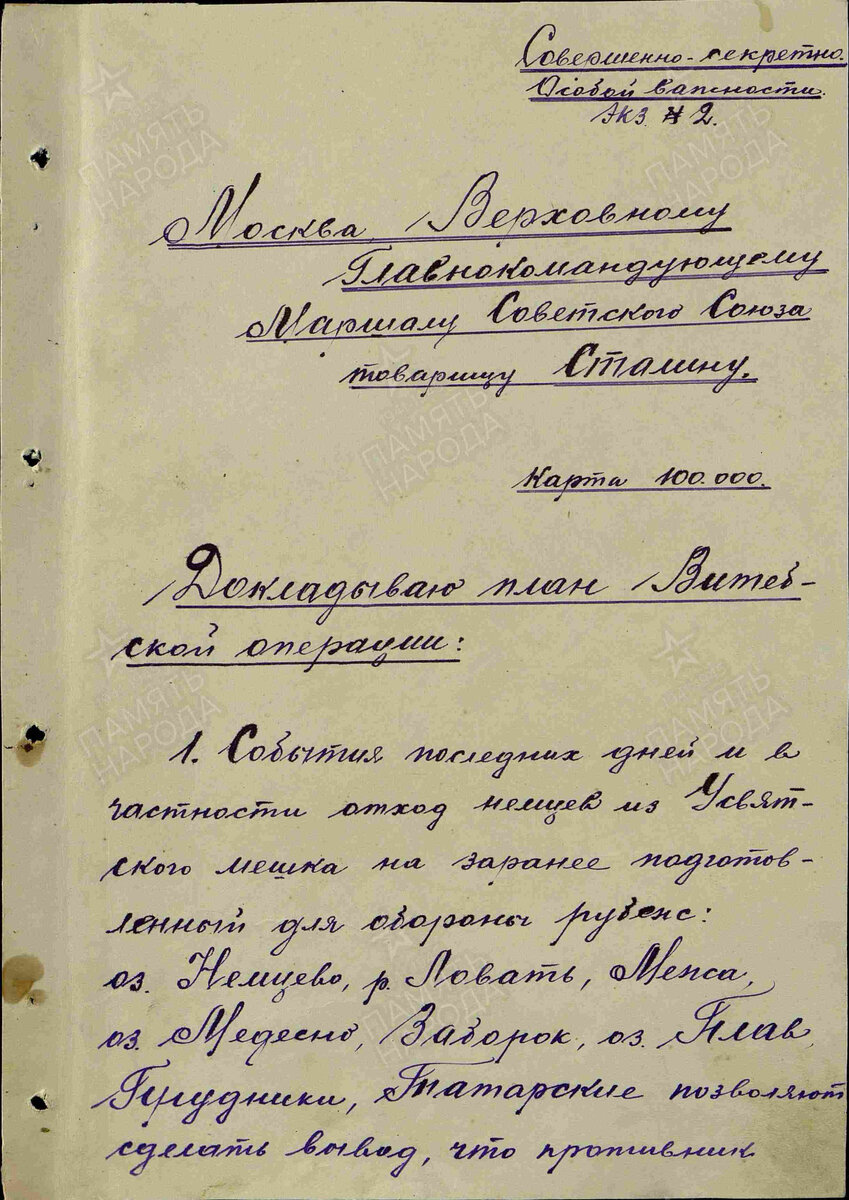 Совершенно-секретно.
Особой важности.
Экз. № 2.
Москва, Верховному
Главнокомандующему
Маршалу Советского Союза
товарищу Сталину.
Карта 100.000.
Докладываю план Витеб-
ской операции:
1. События последних дней и в
частности отход немцев из Усвят-
ского мешка на заранее подготов-
ленный для обороны рубеж:
оз. Немцево, р. Ловать, Межа,
оз. Медесно, Заборок, оз. Плав,
Прудники, Татарские позволяют
сделать вывод, что противник
ПАМЯТЬ
НАРОДА
ПАМЯТЬ
НАРОДА
ПАМЯТЬ
НАРОДА
ПАМЯТЬ
НАРОДА
ПАМЯТЬ
НАРОДА